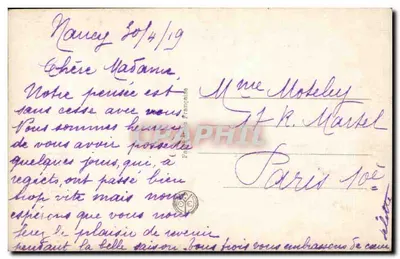 Nancy 30/4/19
Chère Madame,
Notre pensée est
sans cesse avec vous.
Nous sommes heureux
de vous avoir possédée
quelques jours, qui, à
regrets, ont passé bien
trop vite mais nous
espérons que vous nous
ferez le plaisir de revenir
pendant la belle saison. Vous trois vous embrassons de cœur
Mme Moteley
17 R. Martel
Paris 10è
CARTE POSTALE